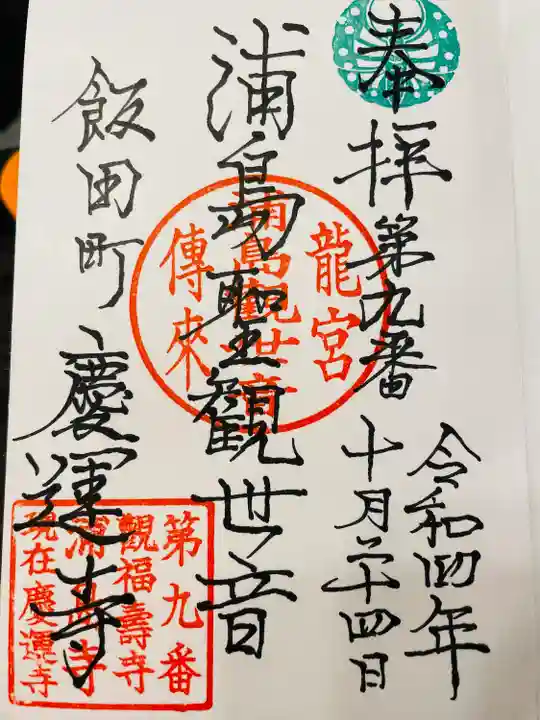 奉拝 第九番
令和四年
十月二十四日
浦島聖観世音
飯田町 慶運寺
龍宮
浦島観世音
傳來
第九番
觀福壽寺
浦島寺
現在慶運寺